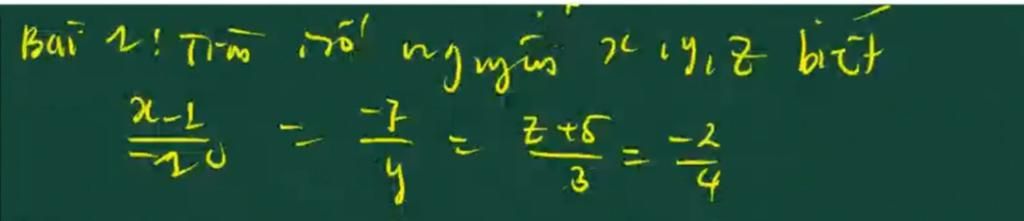 Bài 2: Tìm số nguyên x, y, z biết
x-1/-20 = -7/y = z+5/3 = -2/4